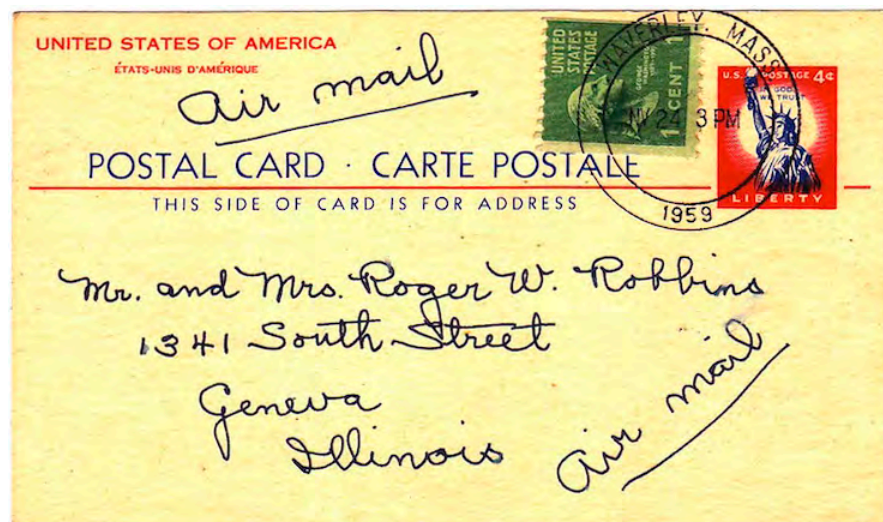 UNITED STATES OF AMERICA
ÉTATS-UNIS D'AMÉRIQUE
air mail
UNITED
STATES
POSTAGE
GEORGE
WASHINGTON
1 CENT 1
WAVERLEY, MASS
NV 24 3 PM
1959
U.S. POSTAGE 4¢
IN GOD
WE TRUST
LIBERTY
POSTAL CARD · CARTE POSTALE
THIS SIDE OF CARD IS FOR ADDRESS
Mr. and Mrs. Roger W. Robbins
1341 South Street
Geneva
Illinois
air mail